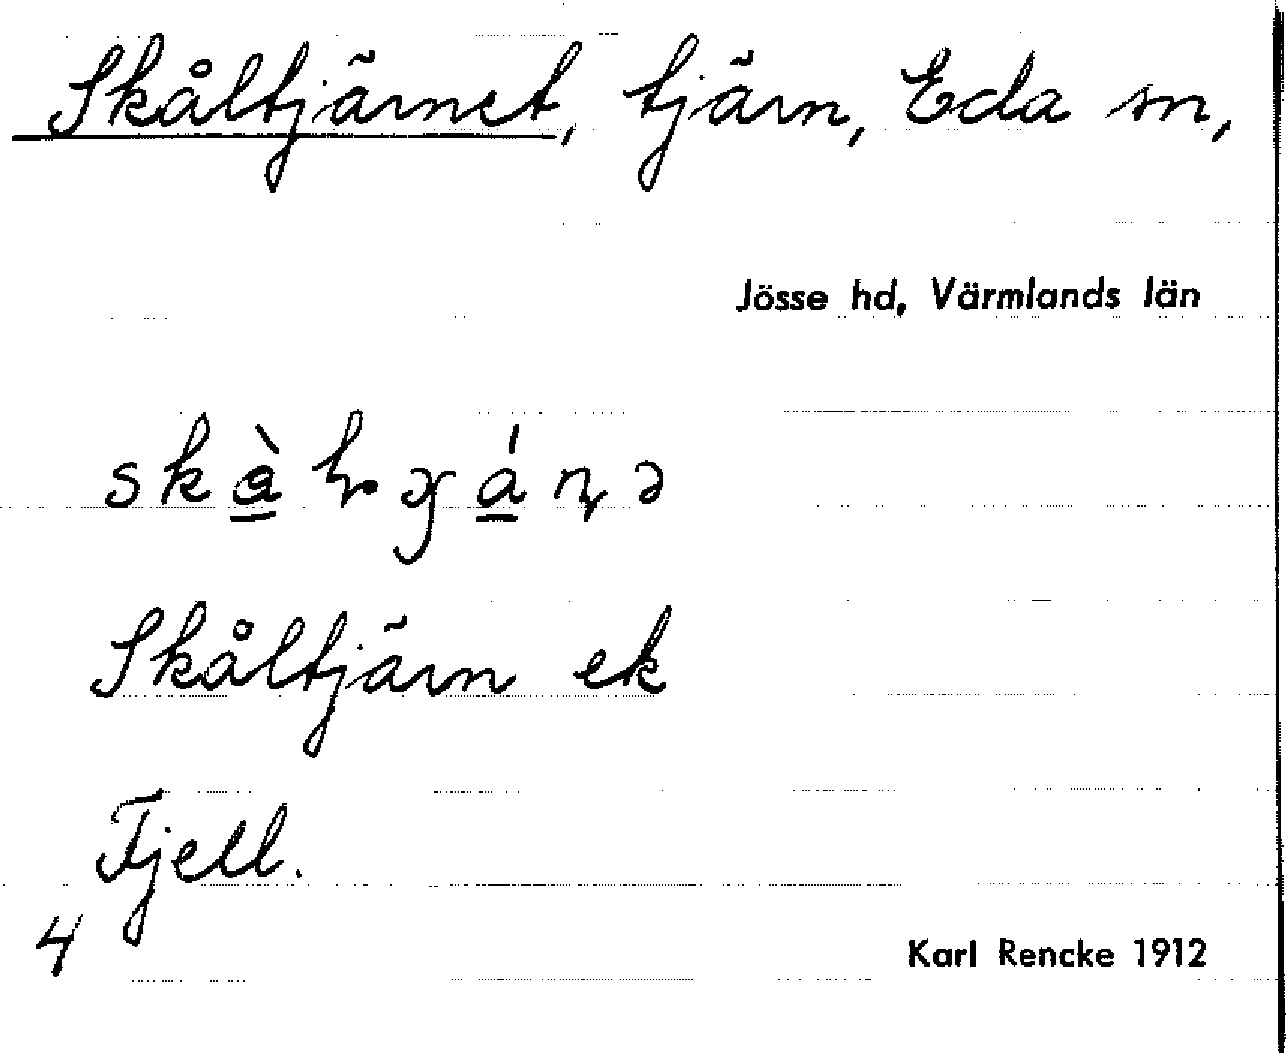 Skåltjärnet, tjärn, Eda sn,
Jösse hd, Värmlands län
Skåltjärn ek
Fjell.
4
Karl Rencke 1912